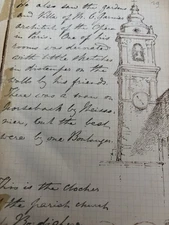 We also saw the garden
and Villa of M. C. Garnier
architect of the Opera
in Paris. One of his
rooms was decorated
with little sketches
in distemper on the
walls by his friends.
There was a man on
horseback by Meisso-
nier, but the best
were by one Boulanger.
This is the clocher
of the parish church